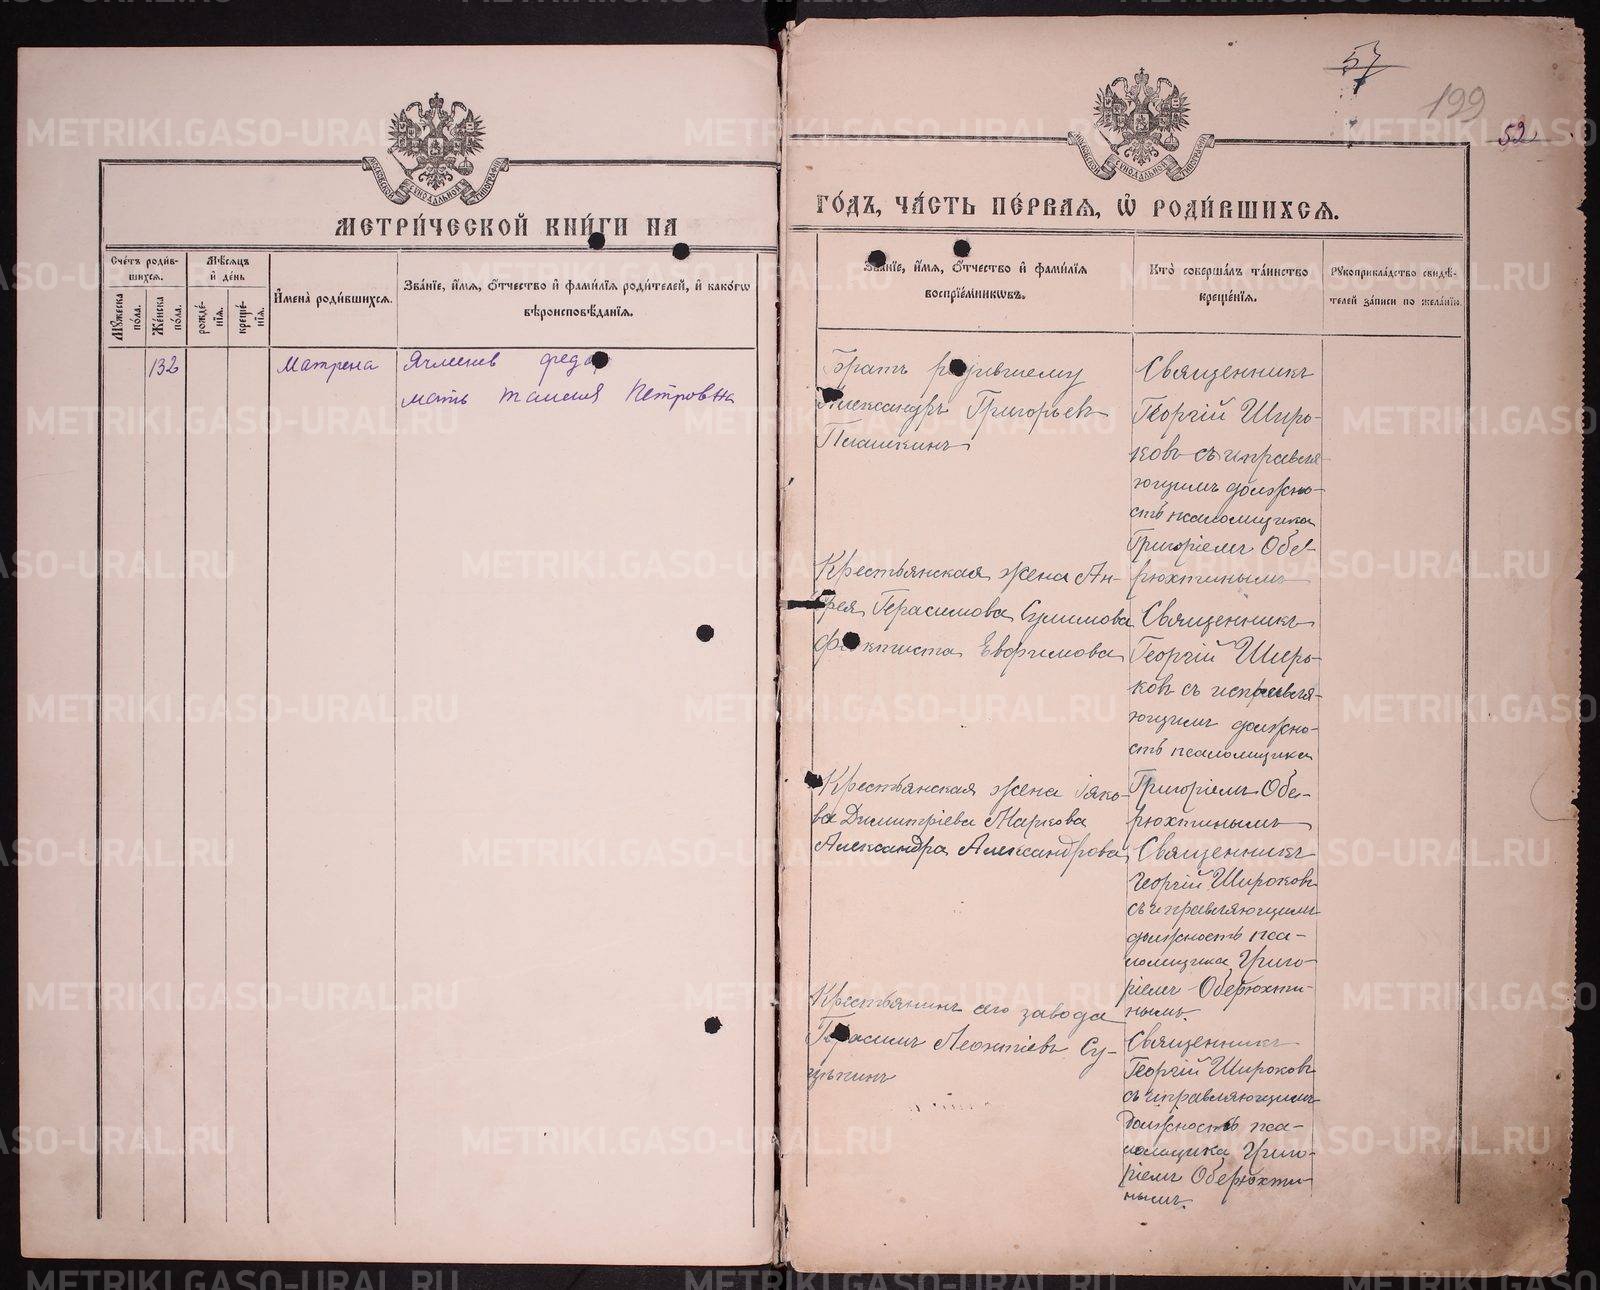 57
199
52
МЕТРИ́ЧЕСКОЙ КНИ́ГИ НА
Сче́тъ роди́в-
шихся.
Мꙋ́жеска
по́ла.
Же́нска
по́ла.
Мѣ́сяцъ
и҆ де́нь
рожде́-
нїѧ.
креще́-
нїѧ.
И҆мена̀ роди́вшихсѧ.
Зва́нїе, и҆́мѧ, ѻ҆́тчество и҆ фамн́лїѧ роди́телей, и҆ како́гѡ
вѣроисповѣ́данїѧ.
132
Матрена
Ячменев федо
мать таисия Петровна
ГО́ДЪ, ЧА́СТЬ ПЕ́РВАѦ, Ѡ҆ РОДИ́ВШИХСѦ.
Зва́нїе, и҆́мѧ, ѻ҆́тчество и҆ фами́лїѧ
воспрїе́мникѡвъ.
Кто̀ соверша́лъ та́инство
креще́нїѧ.
Рꙋкоприкла́дство свидѣ́-
телей за́писи по жела́нїю.
Братъ родившему
Александръ Григорьевъ
Пташкинъ
Священникъ
Георгій Широ-
ковъ съ исправля-
ющимъ должно-
сть псаломщика
Григоріемъ Обе-
рюхтинымъ
Крестьянская жена Ан-
дрея Герасимова Сулимова
Феоктиста Евфимова
Священникъ
Георгій Широ-
ковъ съ исправля-
ющимъ должно-
сть псаломщика
Григоріемъ Обе-
рюхтинымъ
Крестьянская жена Іяко-
ва Димитріева Маркова
Александра Александрова
Священникъ
Георгій Широковъ
съ исправляющимъ
должность пса-
ломщика Григо-
ріемъ Оберюхти-
нымъ.
Крестьянинъ сего завода
Герасимъ Леонтіевъ Су-
Священникъ
Георгій Широковъ
съ исправляющимъ
должность пса-
ломщика Григо-
ріемъ Оберюхти-
нымъ.
METRIKI.GASO-URAL.RU